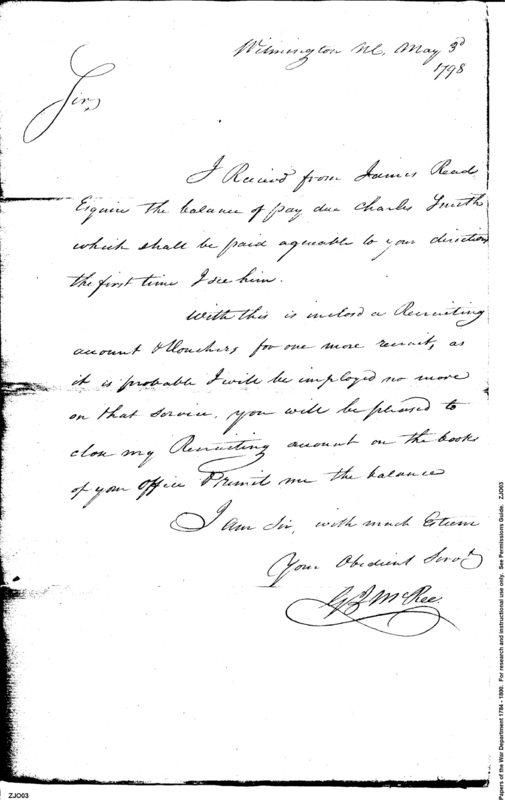 Wilmington NC, May 3d
1798
Sir,
I Receivd from James Read
Esquire the balance of pay due Charles Smith
which shall be paid agreeable to your direction
the first time I see him.
With this is inclosd a Recruiting
account & Vouchers for one more recruit, as
it is probable I will be imployed no more
on that service, you will be pleased to
close my Recruiting account on the books
of your office & remit me the balance
I am Sir, with much Esteem
Your Obedient Servt
G J McRee.
ZJO03
Papers of the War Department 1784 - 1800. For research and instructional use only. See Permissions Guide. ZJO03